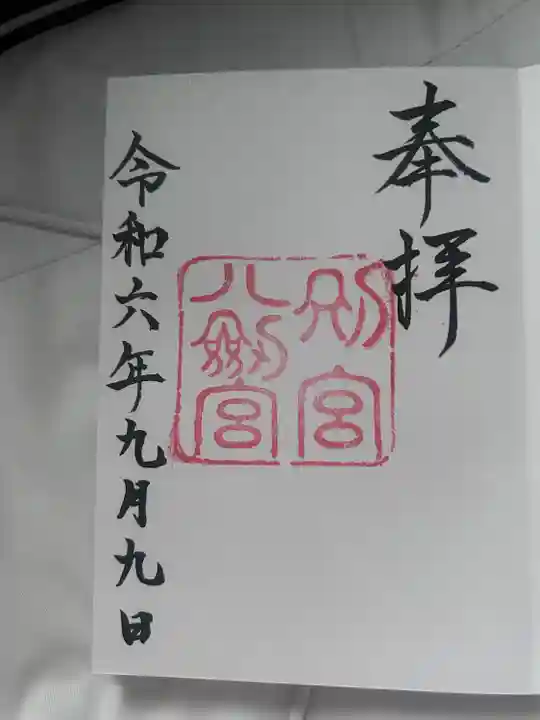 奉拝
別宮
八剱宮
令和六年九月九日